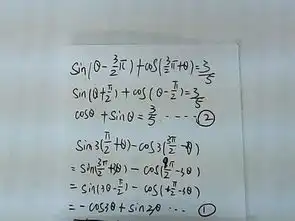 sin(θ-3/2π)+cos(3/2π+θ)=3/5
sin(θ+π/2)+cos(θ-π/2)=3/5
cosθ+sinθ=3/5 ····· ②
sin3(π/2+θ)-cos3(3π/2-θ)
=sin(3π/2+3θ)-cos(9π/2-3θ)
=sin(3θ-π/2)-cos(π/2-3θ)
=-cos3θ+sin3θ ···· ①